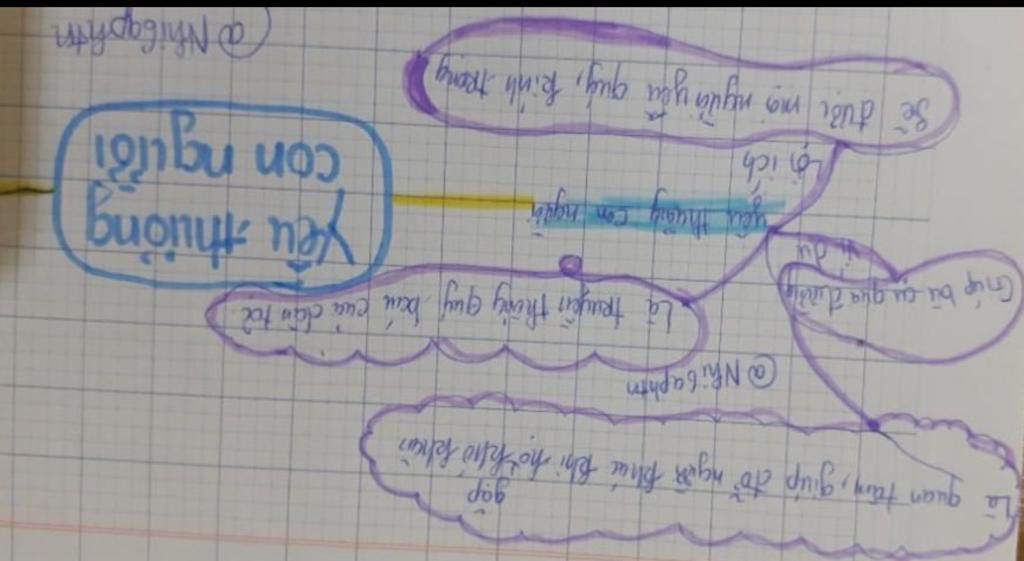 Là quan tâm, giúp đỡ người khác khi họ gặp khó khăn
@Nhi6aphtn
Giúp bà cụ qua đường
ví dụ
Là truyền thống quý báu của dân tộc
Yêu thương
con người
yêu thương con người
Lợi ích
Sẽ được mọi người yêu quý, kính trọng
@Nhi6aphtn